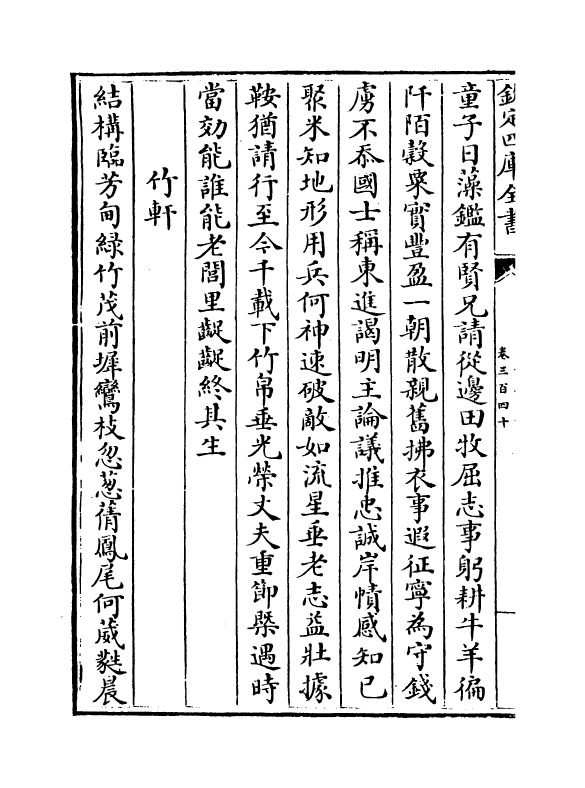 欽定四庫全書
卷三百四十
童子日藻鑑有賢兄請從邊田牧屈志事躬耕牛羊徧
阡陌穀粟實豐盈一朝散親舊拂衣事遐征寧為守錢
虜不忝國士稱東進謁明主論議推忠誠岸幘感知己
聚米知地形用兵何神速破敵如流星垂老志益壯據
鞍猶請行至今千載下竹帛垂光榮丈夫重節槩遇時
當効能誰能老閭里齪齪終其生
竹軒
結構臨芳甸綠竹茂前墀鸞枝忽葱蒨鳳尾何葳蕤晨